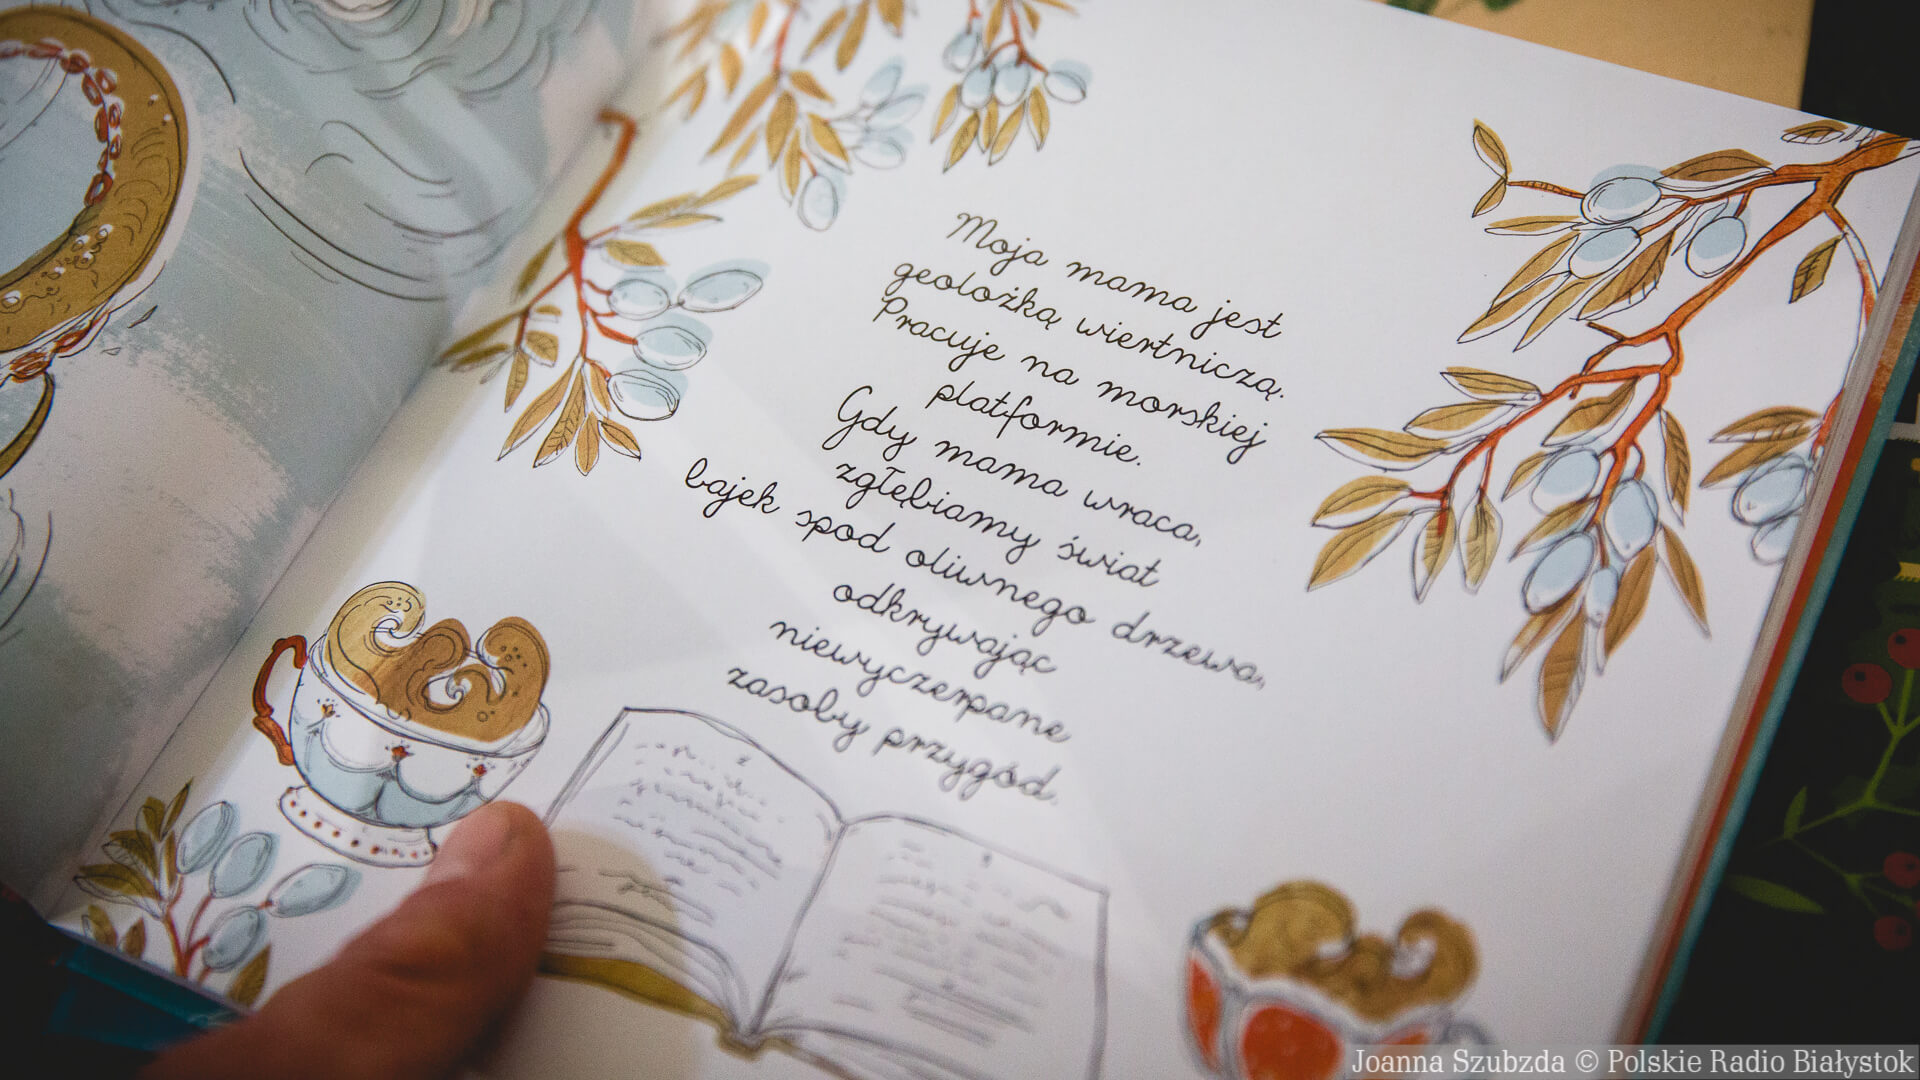 Moja mama jest
geolożką wiertniczą.
Pracuje na morskiej
platformie.
Gdy mama wraca,
zgłębiamy świat
bajek spod oliwnego drzewa,
odkrywając
niewyczerpane
zasoby przygód.
Joanna Szubzda © Polskie Radio Białystok